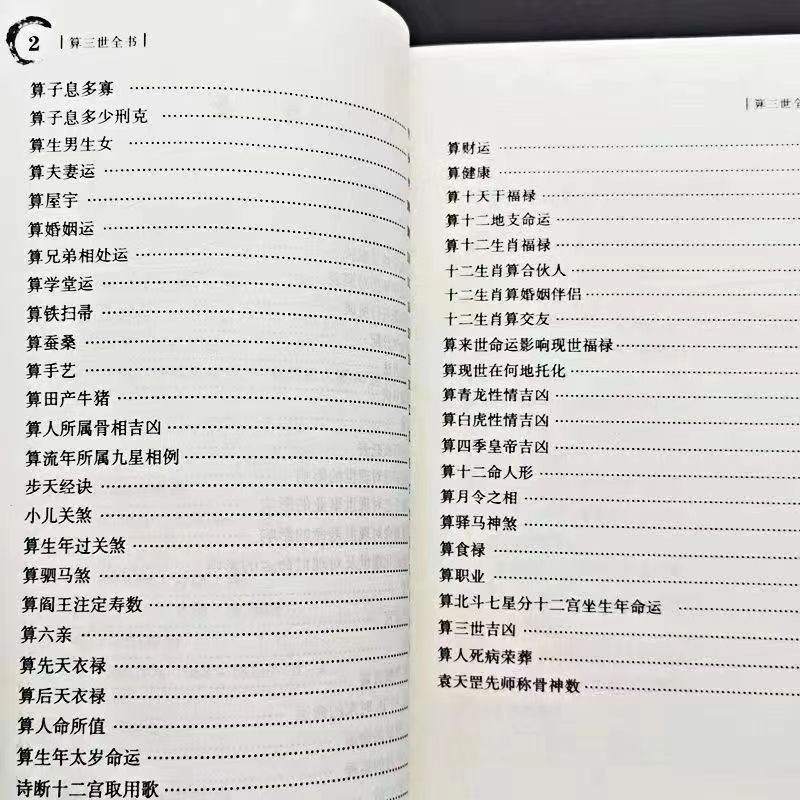 2
算三世全书
算子息多寡
算子息多少刑克
算生男生女
算夫妻运
算屋宇
算婚姻运
算兄弟相处运
算学堂运
算铁扫帚
算蚕桑
算手艺
算田产牛猪
算人所属骨相吉凶
算流年所属九星相例
步天经诀
小儿关煞
算生年过关煞
算驷马煞
算阎王注定寿数
算六亲
算先天衣禄
算后天衣禄
算人命所值
算生年太岁命运
诗断十二宫取用歌
算三世全
算财运
算健康
算十天干福禄
算十二地支命运
算十二生肖福禄
十二生肖算合伙人
十二生肖算婚姻伴侣
十二生肖算交友
算来世命运影响现世福禄
算现世在何地托化
算青龙性情吉凶
算白虎性情吉凶
算四季皇帝吉凶
算十二命人形
算月令之相
算驿马神煞
算食禄
算职业
算北斗七星分十二宫坐生年命运
算三世吉凶
算人死病荣葬
袁天罡先师称骨神数